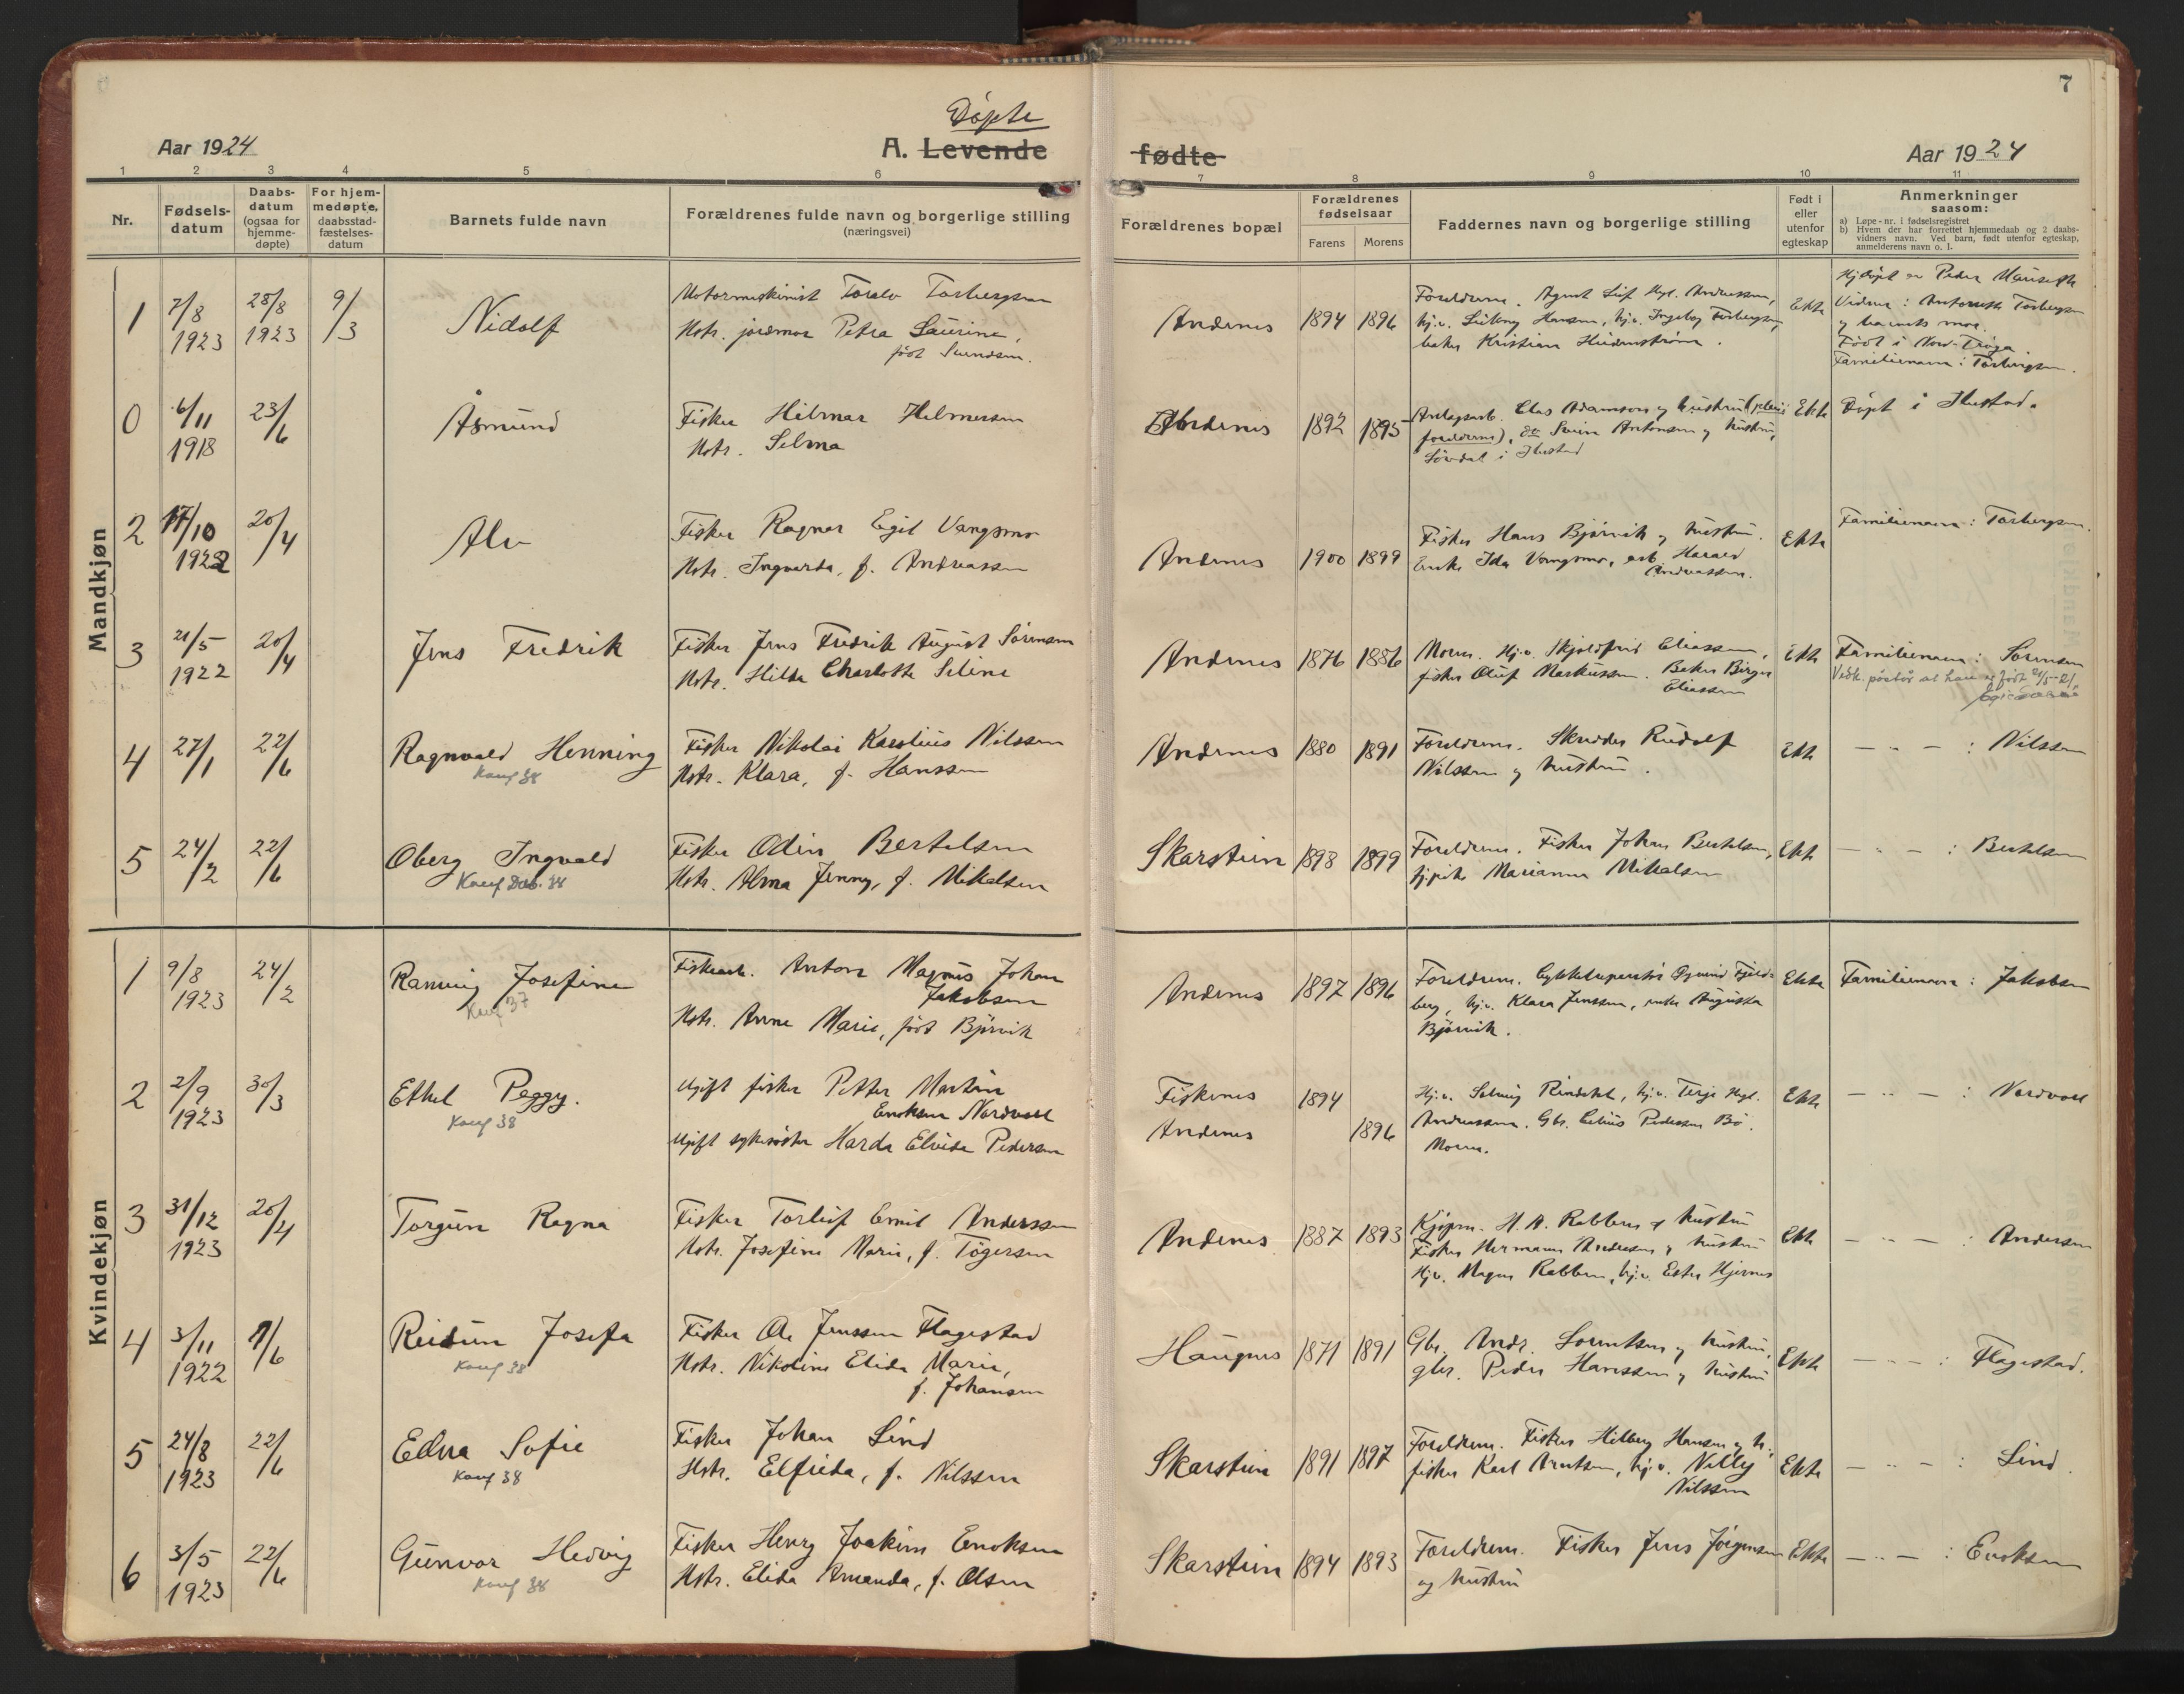 7
Døpte
Aar 1924
A. Levende
fødte
Aar 1924
1 2 3 4 5 6 7 8 9 10 11
Nr.
Fødsels-
datum
Daabs-
datum
(ogsaa for
hjemme-
døpte)
For hjem-
medøpte,
daabsstad-
fæstelses-
datum
Barnets fulde navn
Forældrenes fulde navn og borgerlige stilling
(næringsvei)
Forældrenes bopæl
Forældrenes
fødselsaar
Farens Morens
Faddernes navn og borgerlige stilling
Født i
eller
utenfor
egteskap
Anmerkninger
saasom:
a) Løpe-nr. i fødselsregistret
b) Hvem der har forrettet hjemmedaab og 2 daabs-
vidners navn. Ved barn, født utenfor egteskap,
anmelderens navn o. l.
Mandkjøn
1 7/8 1923 28/8 1923 9/3
Nidolf
Motormaskinist Toralv Torbergsen
Hstr. jordmor Petra Laurine,
født Svendsen.
Andenes 1894 1896
Foreldrene. Agent Leif Hgl. Andreassen,
hj.v. Hansen, hj.v. Ingeborg Torbergsen,
baker Kristian
Ekte
Hj.døpt av Peder
Vidner: Torbergsen
og barnets mor.
Født i
Familienavn: Torbergsen.
0 6/11 1918 23/6
Åsmund
Fisker Hilmar Helmersen
Hstr. Selma
Andenes 1892 1895
Anlegsarb. Elas Adamsen og hustru (pleie-
foreldrene), do Svein Antonsen og hustru,
i Hustad
Ekte
Døpt i Hustad.
2 17/10 1922 20/4
Alv
Fisker Ragnar Egil Vangsmo
Hstr. Ingvarda, f. Andreassen
Andenes 1900 1899
Fisker Hans Bjørvik og hustru.
Enke Ida Vangsmo, arb. Harald
Andreassen.
Ekte
Familienavn: Torbergsen.
3 21/5 1922 20/4
Jens Fredrik
Fisker Jens Fredrik August Sørensen
Hstr. Hilda Charlotte Seline
Andenes 1876 1886
Moren. Hj.v. Skjoldfrid Eliassen,
fisker Oluf Markussen. Baker Birger
Eliassen
Ekte
Familienavn: Sørensen
Vedk. påstår at han er født 21/5-21.
4 27/1 22/6
Ragnvald Henning
Konf 38
Fisker Nikolai Karolius Nilssen
Hstr. Klara, f. Hanssen
Andenes 1880 1891
Foreldrene. Skredder Rudolf
Nilssen og hustru.
Ekte
— " — : Nilssen
5 24/2 22/6
Oberg Ingvald
Konf Dvb. 38
Fisker Odin Bertelsen
Hstr. Alma Jenny, f. Mikalsen
Skarstein 1898 1899
Foreldrene. Fisker Johan Bertelsen,
hj.pike Marianne Mikalsen
Ekte
— " — : Bertelsen
Kvindekjøn
1 9/8 1923 24/2
Ranveig Josefine
Konf 37
Fiskearb. Anton Magnus Johan
Jakobsen
Hstr. Anna Marie, født Bjørvik
Andenes 1897 1896
Foreldrene. Øyvind Fjeld-
berg, hj.v. Klara Jenssen, enke Augusta
Bjørvik.
Ekte
Familienavn: Jakobsen
2 2/9 1923 30/3
Ethel Peggy.
Konf 38
Ugift fisker Petter Martin
Enoksen Nordvoll
Ugift sykesøster Harda Elvida Pedersen
Fiskenes 1894
Andenes 1896
Hj.v. Solveig Rindahl, hj.v. Terje Hgl.
Andreassen. Gbr. Pedersen Bø.
Moren.
Ekte
— " — : Nordvoll
3 31/12 1923 20/4
Torgun Ragna
Fisker Torleif Emil Anderssen
Hstr. Josefine Marie, f. Tøgersen
Andenes 1887 1893
Kjøpm. H. A. Robbern og hustru
Fisker Hermann Andersen og hustru
Hj.v. Magna Robbern, hj.v. Ester Hjernes
Ekte
— " — : Andersen
4 3/11 1922 9/6
Reidun Josefa
Konf 38
Fisker Ole Jenssen Flagestad
Hstr. Nikoline Elida Marie,
f. Johansen
Haugnes 1871 1891
Gbr. Andr. Lorentsen og hustru,
gbr. Peder Hanssen og hustru
Ekte
— " — : Flagestad.
5 24/8 1923 22/6
Edna Sofie
Konf 38
Fisker Johan Lind
Hstr. Elfrida, f. Nilssen
Skarstein 1891 1897
Foreldrene. Fisker Hilberg Hansen og h.,
fisker Karl Arntsen, hj.v. Nelly
Nilssen
Ekte
— " — : Lind
6 3/5 1923 22/6
Gunvor Hedvig
Konf 38
Fisker Henry Joakim Enoksen
Hstr. Elida Amanda, f. Olsen
Skarstein 1894 1893
Foreldrene. Fisker Jens Jørgensen
og hustru
Ekte
— " — : Enoksen